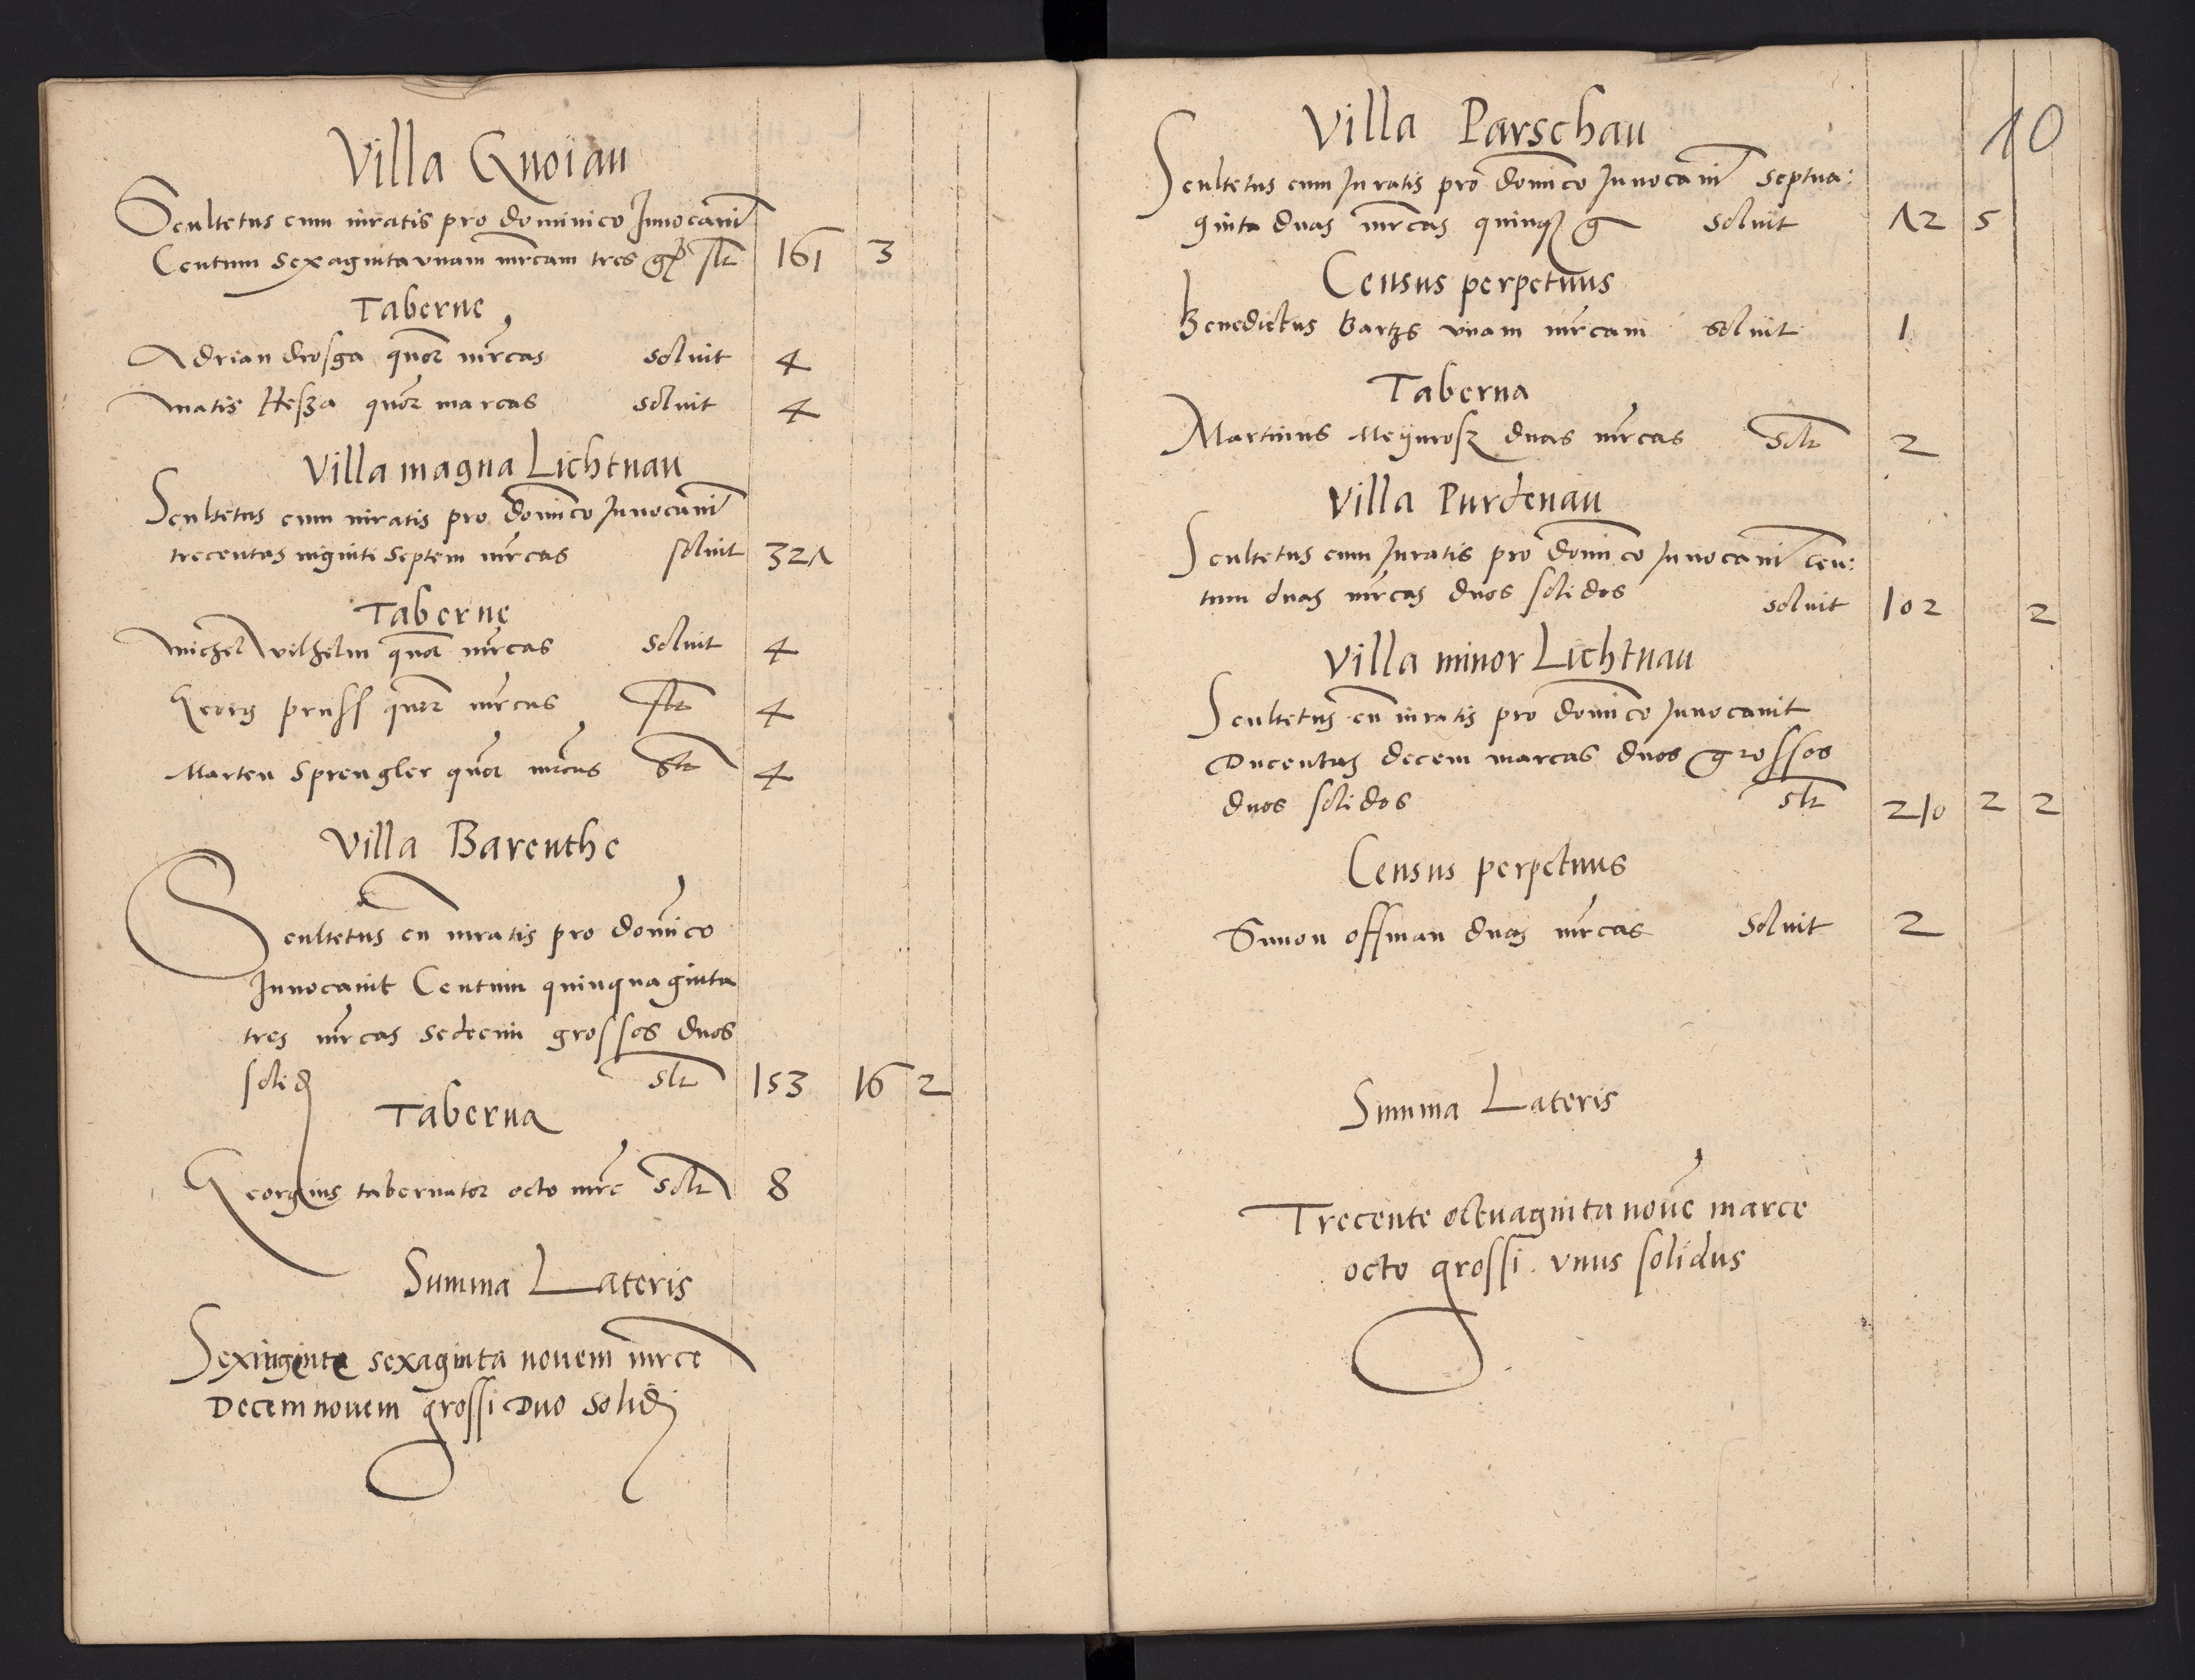 Villa Gnoiau
Scultetus cum iuratis pro dominico Innocauit
Centum sexaginta vnam mrcam tres gr slt 161 3
Taberne
Adrian drosga quor mrcas soluit 4
matis Hesza quor marcas soluit 4
Villa magna Lichtnau
Scultetus cum iuratis pro domico Inuocauit
trecentas uiginti septem mrcas soluit 327
Taberne
michel wilhelm quor mrcas soluit 4
Georg pruss quor mrcas slt 4
Marten Sprengler quor mrcas slt 4
Villa Barenthe
Scultetus cu iuratis pro domico
Inuocauit Centum quinquaginta
tres mrcas sedecim grossos duos
solid slt 153 16 2
Taberna
Georgius tabernator octo mrc solt 8
Summa Lateris
Sexingente sexaginta nouem mrce
Decem nouem grossi Duo solid
10
Villa Parschau
Scultetus cum Iuratis pro domico Inuocauit septua:
ginta duas mrcas quinq g soluit 72 5
Census perpetuus
Benedictus bartzs vnam mrcam soluit 1
Taberna
Martinus Meijmosz duas mrcas solt 2
Villa Purdenau
Scultetus cum Iuratis pro domico Inuocauit cen:
tum duas mrcas duos solidos soluit 102 2
Villa minor Lichtnau
Scultetus cu iuratis pro domico Inuocauit
Ducentas decem marcas duos grossos
duos solidos slt 210 2 2
Census perpetuus
Simon offman duas mrcas soluit 2
Summa Lateris
Trecente octuaginta noue marce
octo grossi vnus solidus